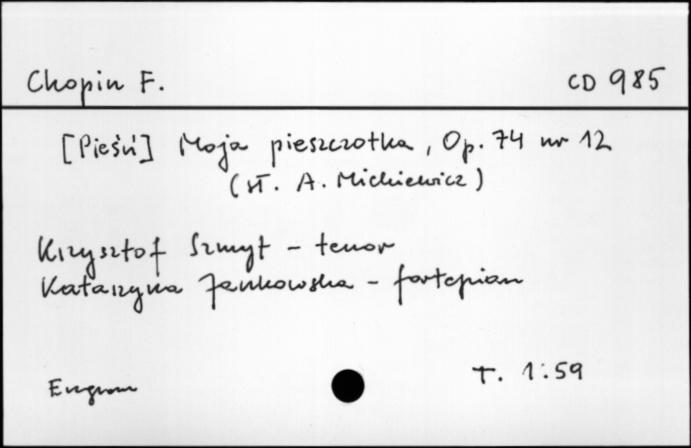 Chopin F. CD 985
[Pieśń] Moja pieszczotka, Op. 74 nr 12
(sł. A. Mickiewicz)
Krzysztof Szmyt - tenor
Katarzyna Jankowska - fortepian
T. 1:59